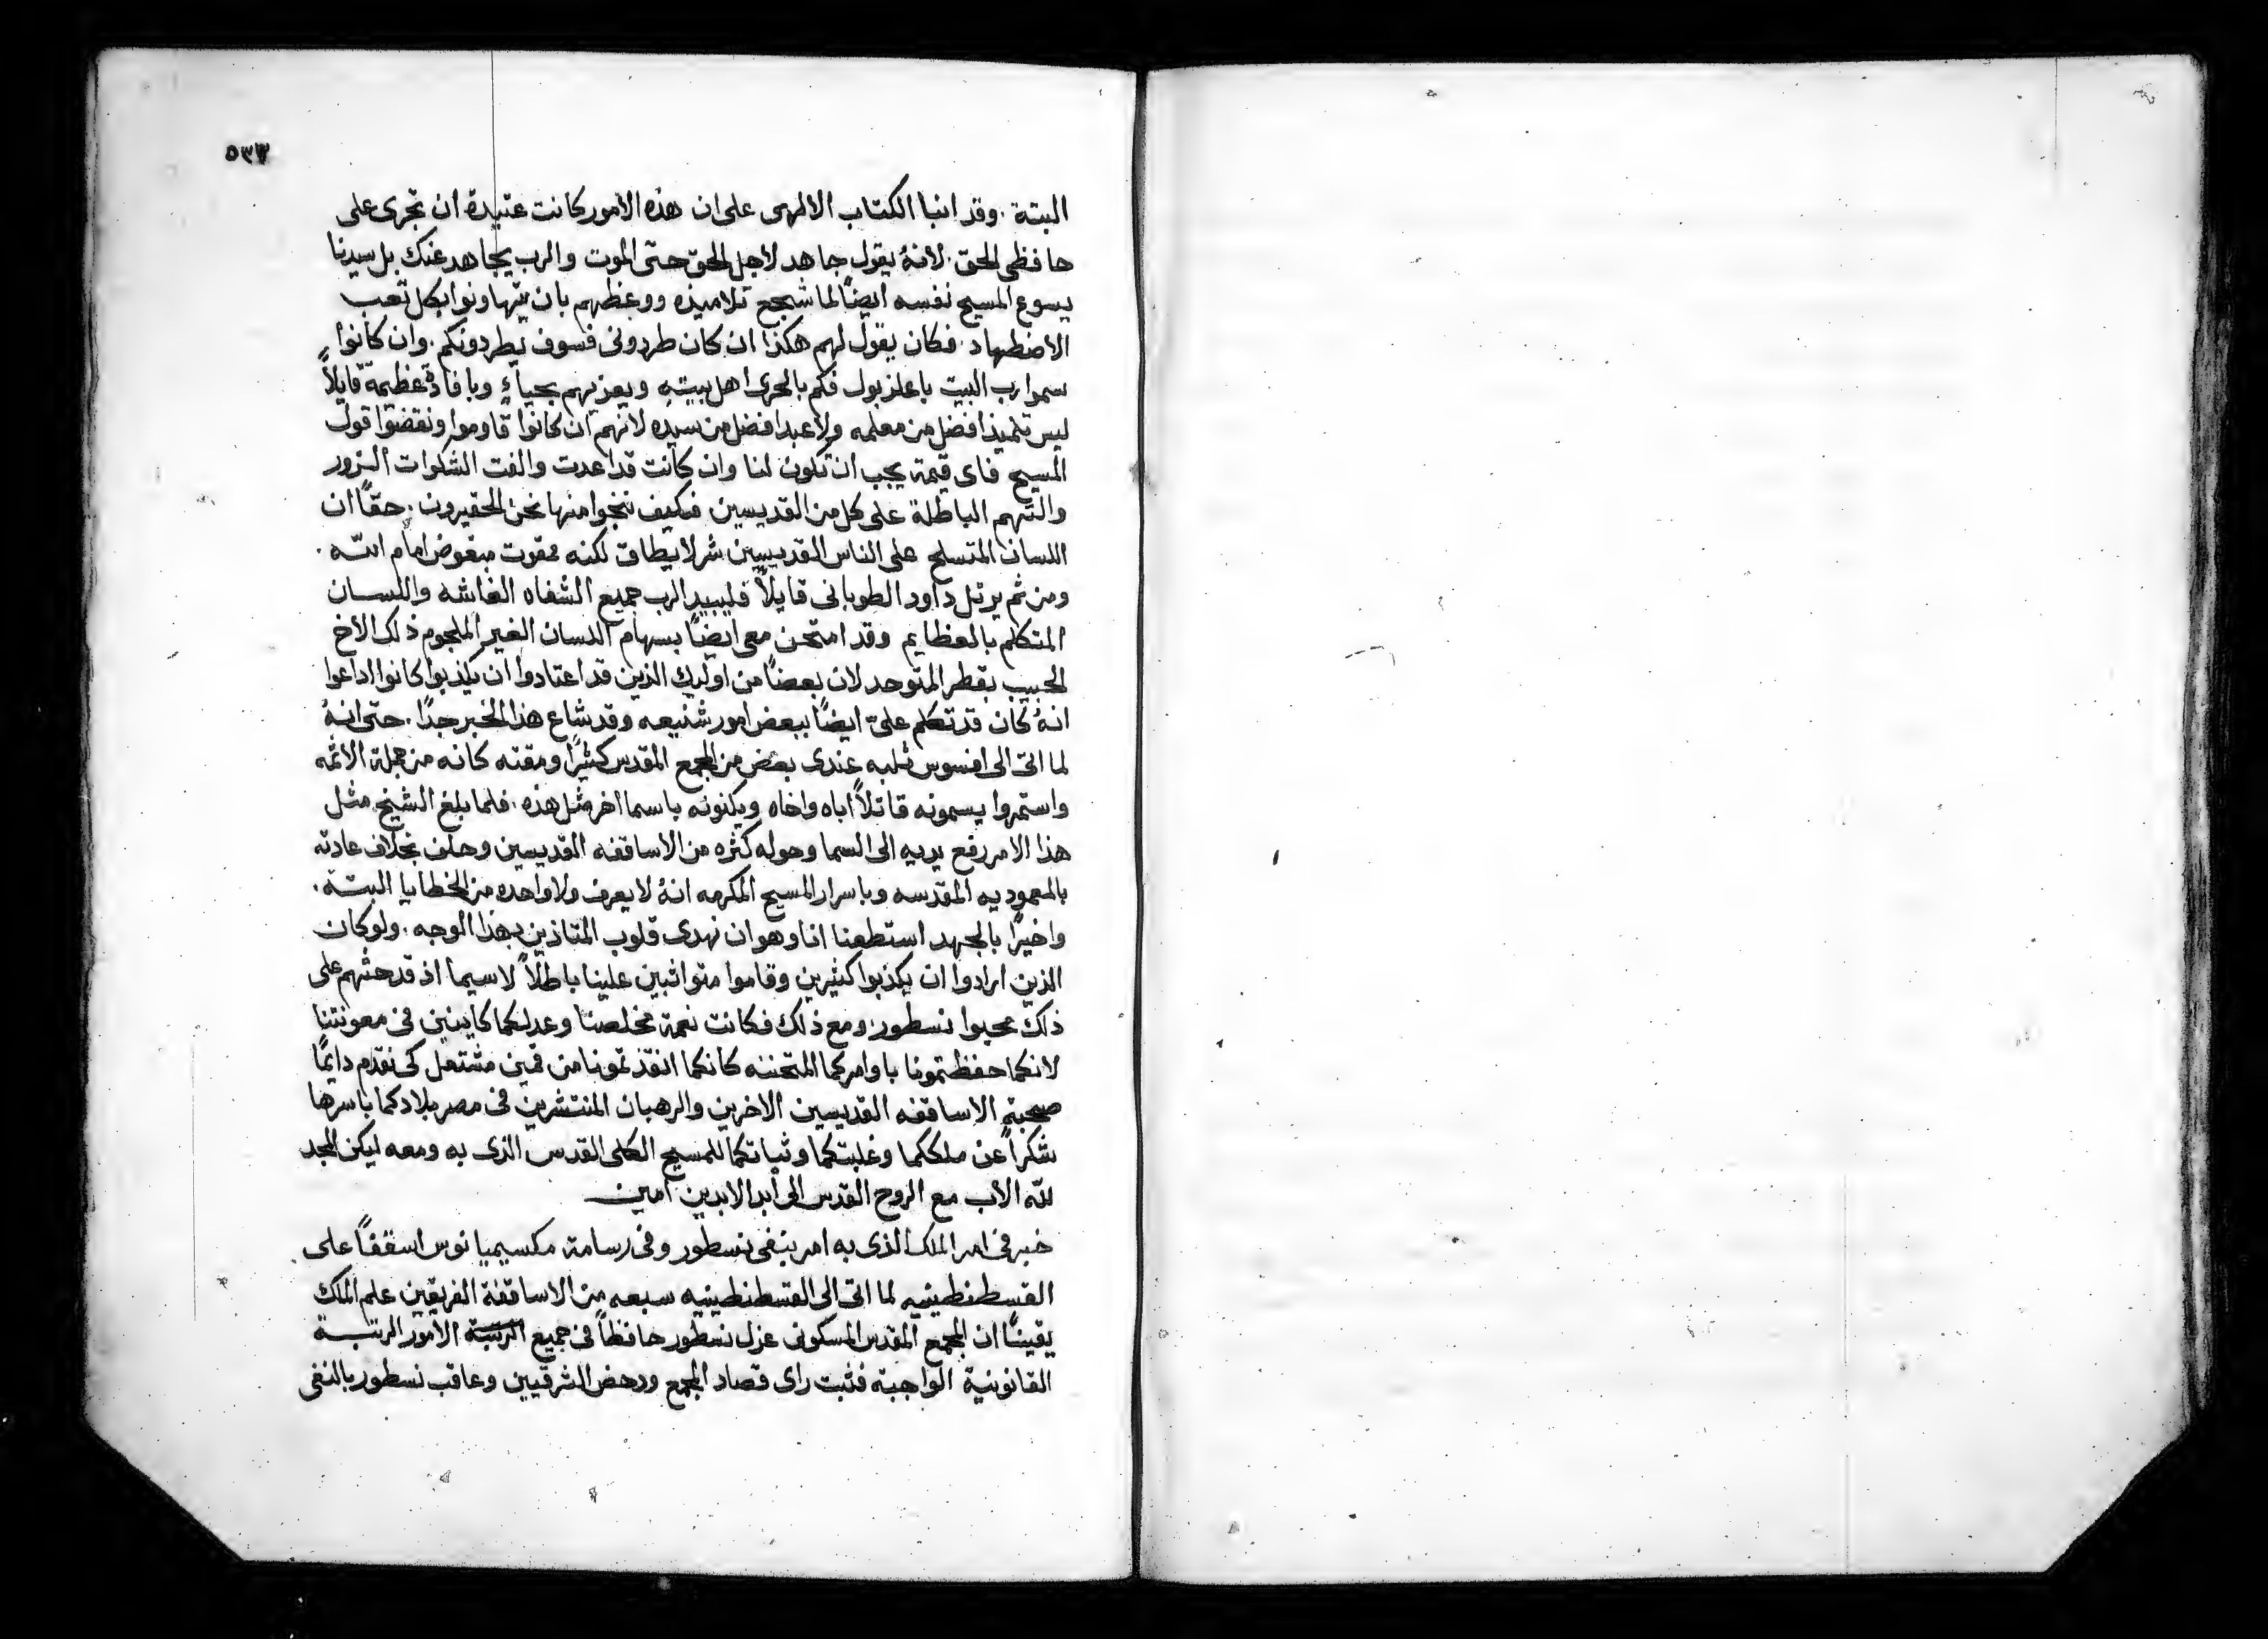 ٥٣٣
البتة. وقد انبا الكتاب الالهى على ان هذه الامور كانت عتيدة ان تجرى على
حافظى الحق. لأنهُ يقول جاهد لاجل الحق حتى الموت والرب يجاهد عنك بل سيدنا
يسوع المسيح نفسه ايضًا لما شجع تلاميذه ووعظهم بان يتهاونوا بكل تعب
الاضطهاد. فكان يقول لهم هكذا ان كان طردونى فسوف يطردونكم. وان كانوا
سموا رب البيت باعلزبول فكم بالحرى اهل بيتهِ ويعزيهم بحياءٍ وبافادة عظيمة قايلاً
ليس تلميذ افضل من معلمه ولا عبد افضل من سيده لانهم ان كانوا قاوموا ونقضوا قول
المسيح فاى قيمة يجب ان تكون لنا وان كانت قد اعدت والفت الشكوات الزور
والتهم الباطلة على كل من القديسين فكيف ننجوا منها نحن الحقيرون. حقًا ان
اللسان المتسلح على الناس القديسين شر لا يطاق لكنه ممقوت مبغوض امام الله.
ومن ثم يرتل داود الطوبانى قايلاً فليبيد الرب جميع الشفاه الغاشه واللسان
المتكلم بالعظايم وقد امتحن معى ايضًا بسهام اللسان الغير الملجوم ذلك الاخ
الحبيب بقطر المتوحد لان بعضًا من اوليك الذين قد اعتادوا ان يكذبوا كانوا اذاعوا
انهُ كان قد تكلم علىّ ايضًا ببعض امور شنيعه وقد شاع هذا الخبر جدًا. حتى انهُ
لما اتى الى افسوس ثلبه عندى بعض من المجمع المقدس كثيرًا ومقته كانه من جملة الاثمه
واستمروا يسمونه قاتلاً اباه واخاه ويكنونه باسما اخر مثل هذه. فلما بلغ الشيخ مثل
هذا الامر رفع يديه الى السما وحوله كثره من الاساقفه القديسين وحلف بخلاف عادته
بالمعموديه المقدسه وباسرار المسيح المكرمه انهُ لا يعرف ولا واحده من الخطايا البتة.
واخيرًا بالجهد استطعنا انا وهو ان نهدى قلوب المتاذين بهذا الوجه. ولو كان
الذين ارادوا ان يكذبوا كثيرين وقاموا متواثبين علينا باطلاً لاسيما اذ قد حثهم على
ذلك محبوا نسطور. ومع ذلك فكانت نعمة مخلصنا وعدلكما كاينين فى معونتنا
لانكما حفظتمونا باوامركما المتحننه كانكما انقذتمونا من قمين مشتعل كى نقدم دايمًا
صحبة الاساقفه القديسين الاخرين والرهبان المنتشرين فى مصر بلادكما باسرها
شكراً عن ملككما وغلبتكما وثباتكما للمسيح الكلى القدس الذى به ومعه ليكن المجد
لله الاب مع الروح القدس الى أبد الابدين امين
خبر فى امر الملك الذى به امر بنفى نسطور وفى رسامة مكسيميانوس اسقفاً على
القسطنطينيه لما اتى الى القسطنطينيه سبعه من الاساقفة الفريقين علم الملك
يقينًا ان المجمع المقدس المسكونى عزل نسطور حافظاً فى جميع الرتبة الامور الرتبة
القانونية الواجبة فثبت راى قصاد المجمع ودحض الشرقيين وعاقب نسطور بالنفى